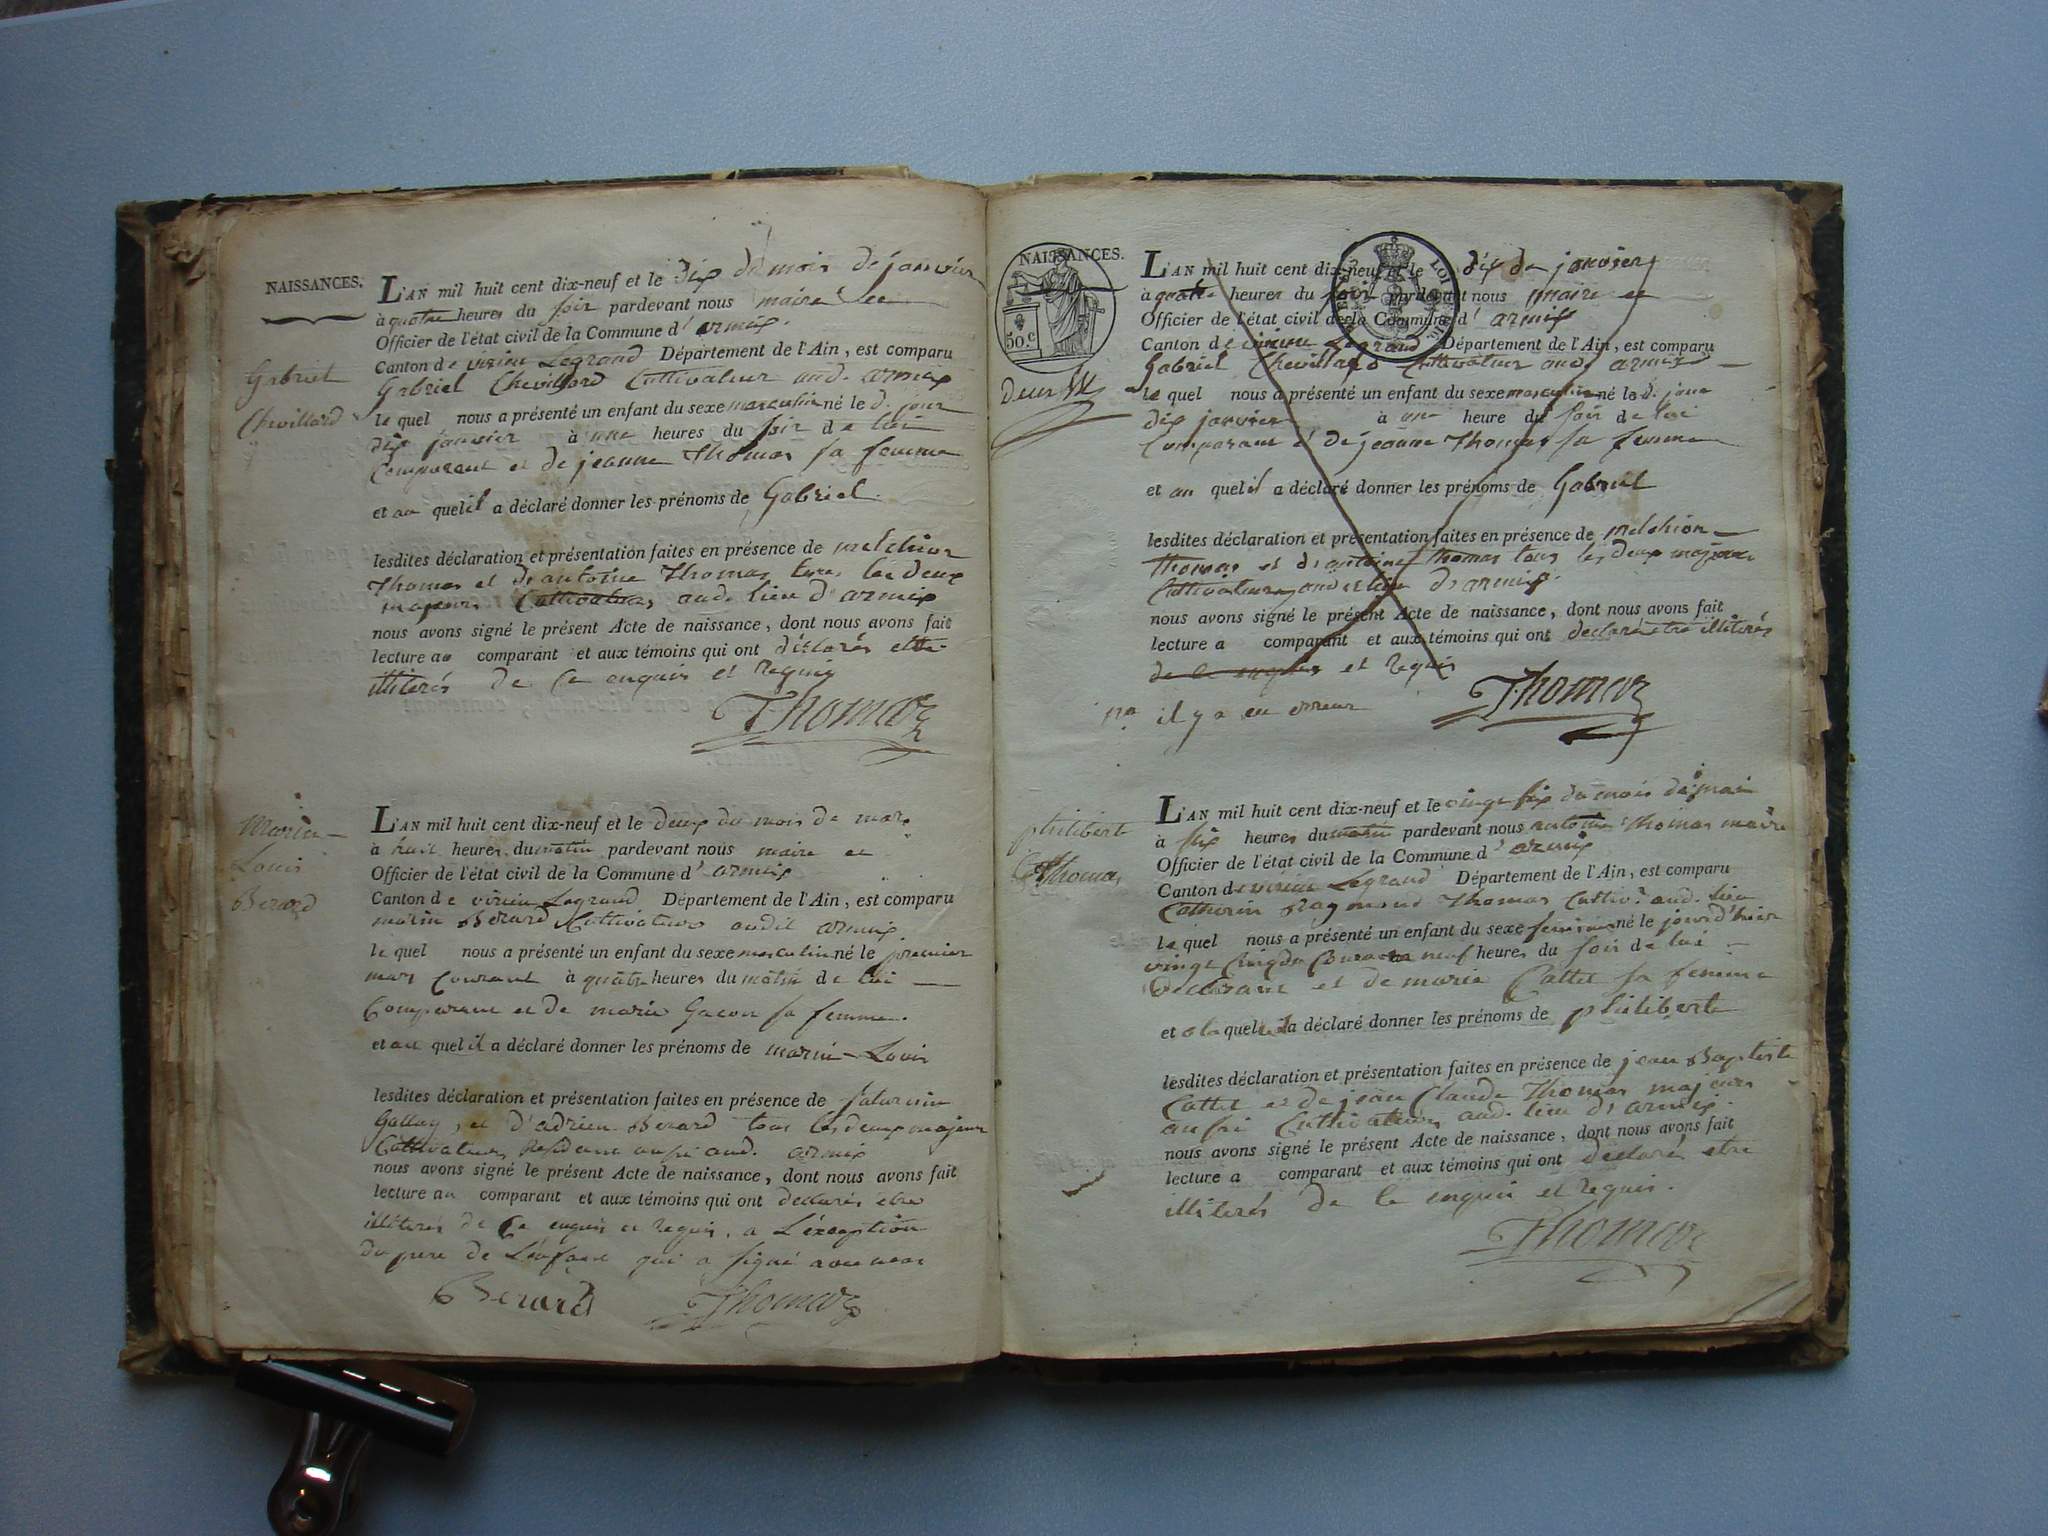 NAISSANCES.
L'AN mil huit cent dix-neuf et le Dix du mois de janvier
à quatre heures du soir pardevant nous maire et
Officier de l'état civil de la Commune d'armix.
Canton de virieu Legrand Département de l'Ain, est comparu
Gabriel
Chevillard
Gabriel Chevillard Cultivateur aud. armix
le quel nous a présenté un enfant du sexe masculin né le d. jour
dix janvier à une heures du soir de lui
Comparant et de jeanne Thomas sa femme
et au quel il a déclaré donner les prénoms de Gabriel.
lesdites déclaration et présentation faites en présence de melchior
Thomas et d'antoine Thomas tous les deux
majeurs Cultivateurs aud. lieu d'armix
nous avons signé le présent Acte de naissance, dont nous avons fait
lecture au comparant et aux témoins qui ont déclarés etre
illiterés de Ce enquis et Requis
Thomas
Marin
Louis
Berard
L'AN mil huit cent dix-neuf et le deux du mois de mars
à huit heures du matin pardevant nous maire et
Officier de l'état civil de la Commune d'armix
Canton de virieu Legrand Département de l'Ain, est comparu
marin Berard Cultivateur audit armix
le quel nous a présenté un enfant du sexe masculin né le premier
mars Courant à quatre heures du matin de lui
Comparant et de marie Gacon sa femme.
et au quel il a déclaré donner les prénoms de marin Louis
lesdites déclaration et présentation faites en présence de saturnin
Gallay, et d'adrien Berard tous les deux majeurs
Cultivateurs Residant aussi aud. armix
nous avons signé le présent Acte de naissance, dont nous avons fait
lecture au comparant et aux témoins qui ont declarés etre
illiterés de Ce enquis et Requis, a L'exception
du pere de L'enfant qui a signé avec nous
Berard Thomas
NAISSANCES.
50.c
deux
L'AN mil huit cent dix-neuf et le dix de janvier
à quatre heures du soir pardevant nous maire et
Officier de l'état civil de la Commune d'armix
Canton de virieu Legrand Département de l'Ain, est comparu
Gabriel Chevillard Cultivateur aud. armix
le quel nous a présenté un enfant du sexe masculin né le d. jour
dix janvier à une heure du soir de lui
Comparant et de jeanne Thomas sa femme
et au quel il a déclaré donner les prénoms de Gabriel
lesdites déclaration et présentation faites en présence de melchior
Thomas et d'antoine Thomas tous les deux majeurs
Cultivateurs audit lieu d'armix.
nous avons signé le présent Acte de naissance, dont nous avons fait
lecture a comparant et aux témoins qui ont declarés etre illiterés
de ce enquis et Requis
il y a eu erreur
Thomas
philiberte
Thomas
L'AN mil huit cent dix-neuf et le vingt six du mois de mai
à six heures du matin pardevant nous antoine Thomas maire
Officier de l'état civil de la Commune d'armix
Canton de virieu Legrand Département de l'Ain, est comparu
Catherin Raymond Thomas Cultiv.r aud. lieu
le quel nous a présenté un enfant du sexe feminin né le jour d'hier
vingt Cinq du Courant neuf heures du soir de lui
declarant et de marie Cattet sa femme
et a la quelle il a déclaré donner les prénoms de philiberte
lesdites déclaration et présentation faites en présence de jean Baptiste
Cattet et de jean Claude Thomas majeurs
aussi Cultivateurs aud. lieu d'armix.
nous avons signé le présent Acte de naissance, dont nous avons fait
lecture a comparant et aux témoins qui ont declarés etre
illiterés de Ce enquis et Requis.
Thomas